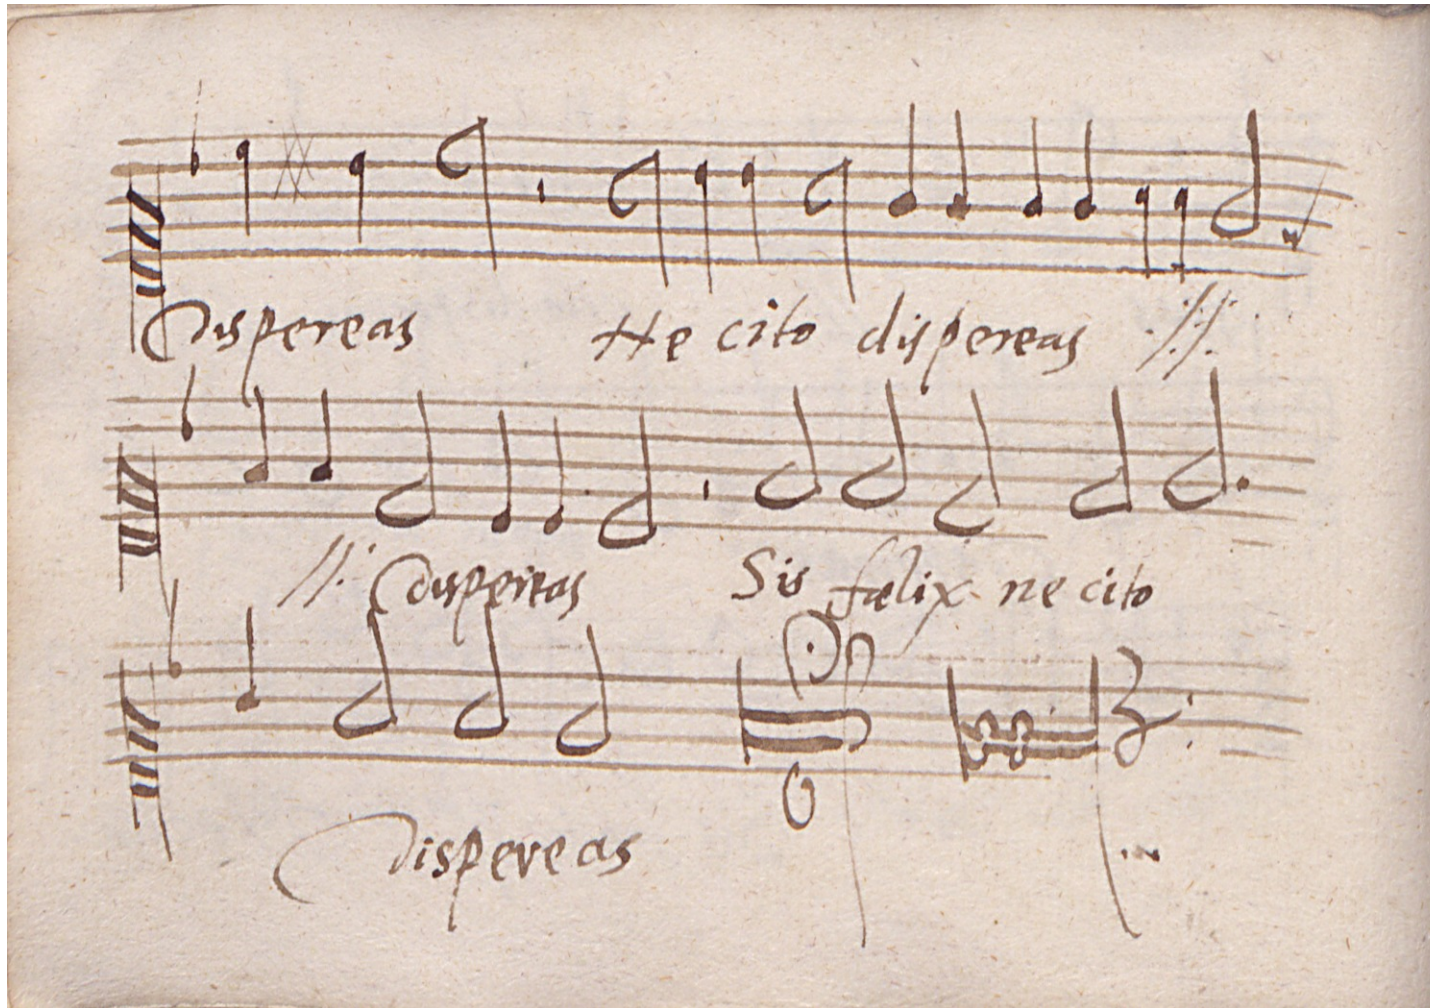 Dispereas Ne cito dispereas .//.
//: dispereas Sis fœlix ne cito
Dispereas